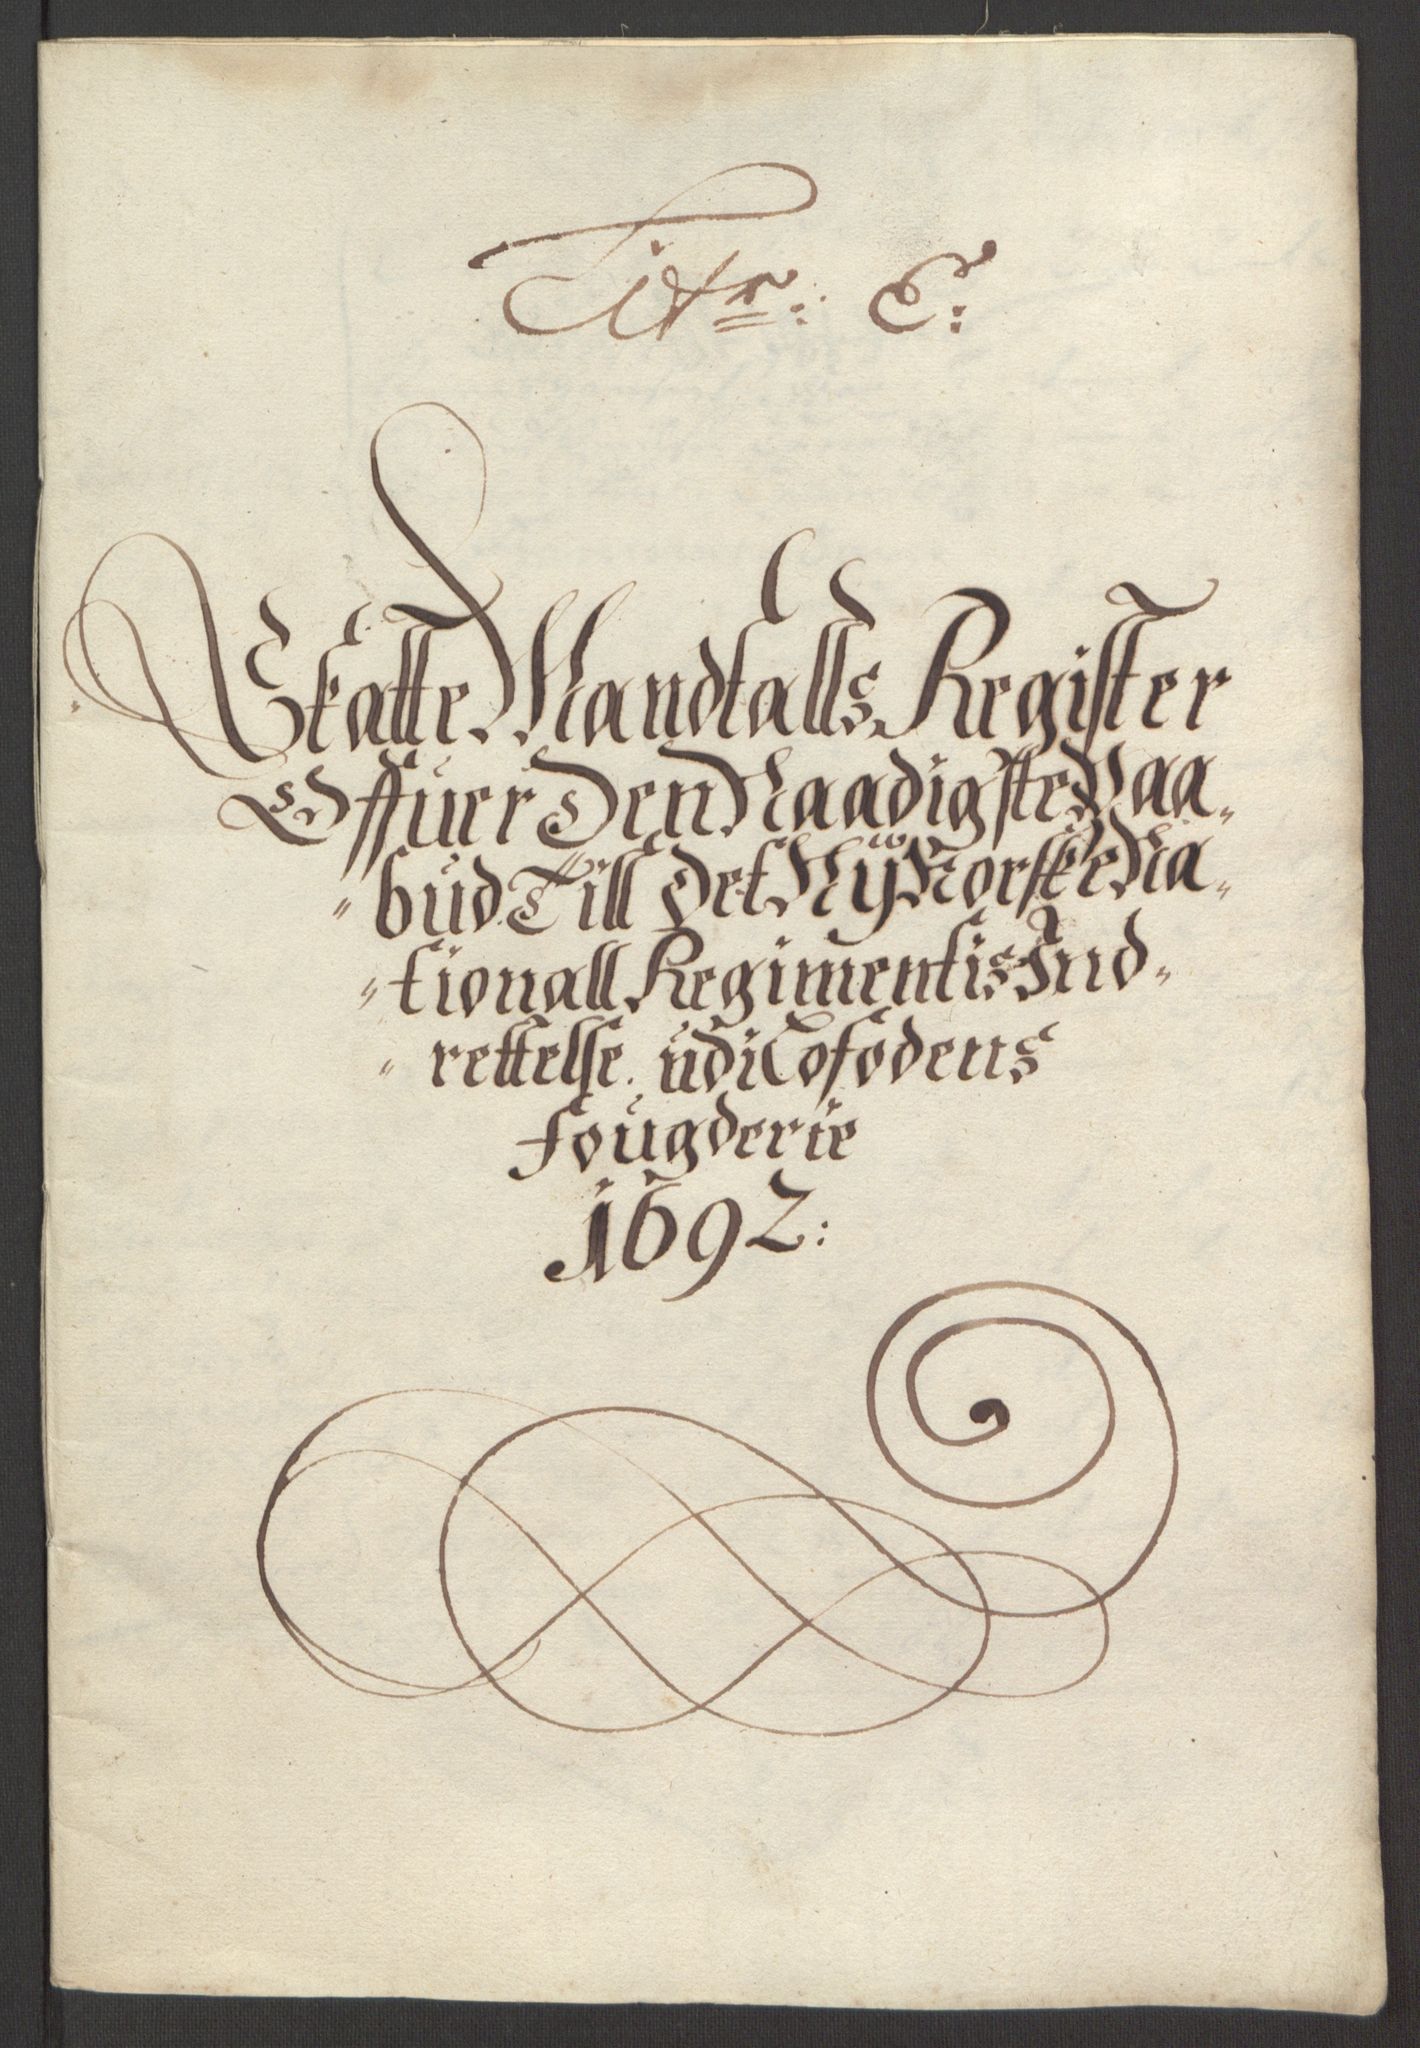 Littr: C:
Skatte Mandtalls Register
Offuer Den Naadigste Paa-
"bud Till Det Ny Norske Na-
"tionall Regimentis Ind-
"rettelse udi Lofodens
fougderie
1692: